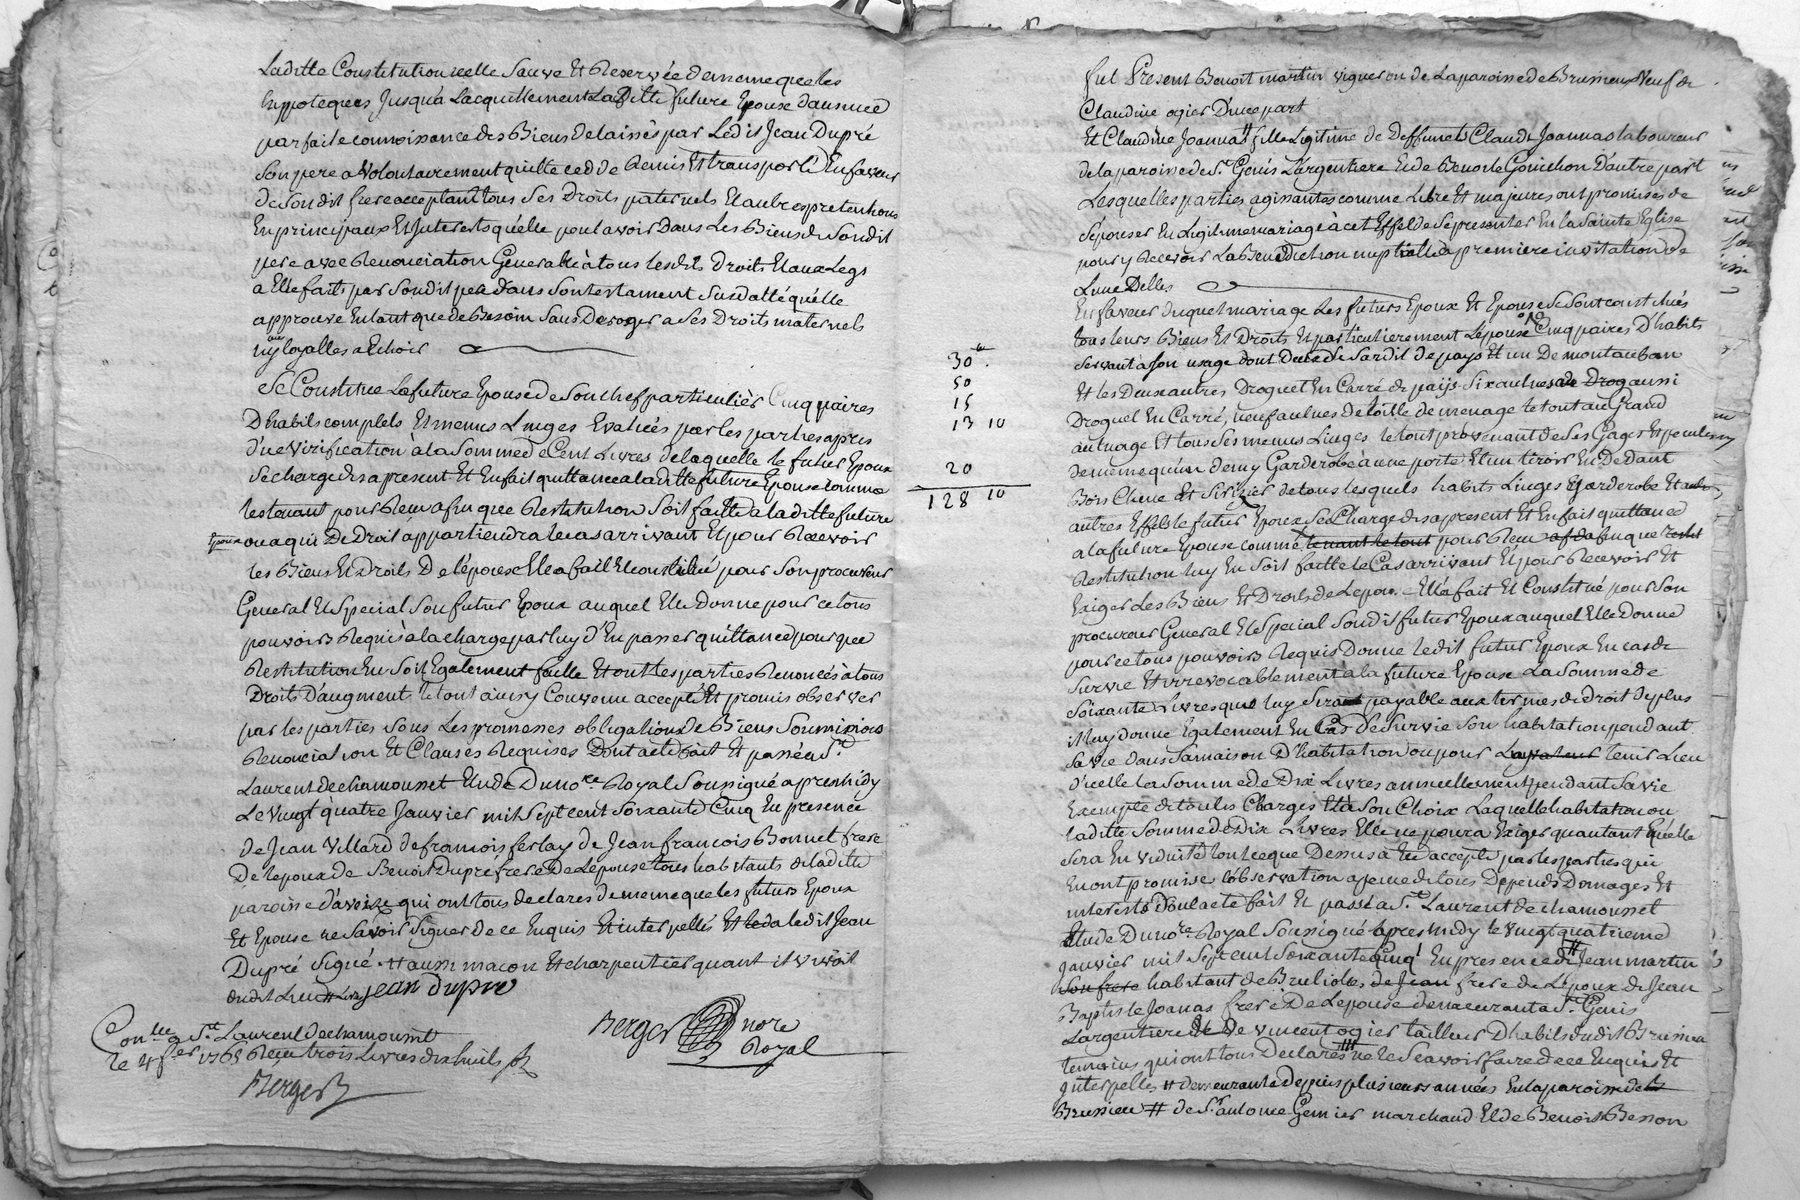 Laditte Constitution icelle sauve Et Reservée de meme que les
hippoteques Jusqu'a Lacquittement La Ditte future Epouse dans une
parfaite connoissance des Biens delaissés par Ledit Jean Dupré
son pere a Volontairement quitte cedde Remis Et transporté En faveur
de Son dit frere acceptant tous Ses Droits paternels Et autres pretentions
En principaux Et Interets qu'elle peut avoir Dans Les Biens du Sondit
pere avec Renonciation Generalle à tous lesdits Droits Et aux Legs
a Elle faits par Son dit pere dans Son testament Susdatté qu'elle
approuve En tant que de Besoin Sans Deroger a Ses Droits maternels
ny loyalles a Echoir
Se Constitue La future Epouse de Son chef particulièr Cinq paires
D'habits complets Et menus Linges Evalués par les parties apres
d'üe Verification à la Somme de Cent Livres de laquelle le futur Epoux
Se charge des a present Et En fait quittance a la ditte future Epouse comme
les tenant pour Reçu afin que Restitution Soit faitte a la ditte future
Epouse ou a qui De Droit appartiendra le cas arrivant Et pour Recevoir
les Biens Et Droits De l'epouse Elle a fait Et constitué pour Son procureur
General Et Special Son futur Epoux auquel Elle donne pour ce tous
pouvoirs Requis à la charge par luy d'En passer quittance pour que
Restitution En Soit Egalement faitte Et ont les parties Renoncés à tous
Droits D'augment le tout ainsy Convenu accepté Et promis observer
par les parties Sous Les promesses obligations de Biens Soumissions
Renonciation Et Clauses Requises Dont acte fait Et passé a St
Laurent de chamousset Etude Du nore Royal Soussigné apres midy
Le Vingt quatre Janvier mil Sept cent Soixante Cinq En presence
de Jean Villard de francois ferlay de Jean francois Bonnet frere
De l'epoux de Benoit Dupré frere De L'epouse tous habitants de la ditte
paroisse d'aveize qui ont tous declarés de meme que les futurs Epoux
Et Epouse ne Savoir Signer de ce Enquis Et interpellés Et ledit Jean
Dupré Signé Et aussi macon Et charpentier quant il vivoit
dudit Lieu jean dupré
Berger nore
Royal
Conllé a St Laurent de chamousset
le 4 fer 1765 Reçu trois Livres dix huits s
Berger
30 ₶
50
15
13 10
20
128 10
fut Present Benoit martin vigneron de La paroisse de Brussieu Veuf de
Claudine ogier D'une part
Et Claudine Joannas # fille Legitime de Deffunts Claude Joannas laboureur
de la paroisse de St Genis L'argentiere Et de Benoite Gouchon D'autre part
Lesquelles parties agissantes comme Libre Et majeures ont promises de
S'epouser En Legitime mariage à cet Effet de Se presenter En la Sainte Eglise
pour y Recevoir La Benediction nuptialle a premiere invitation de
L'une D'elles
En faveur duquel mariage Les futurs Epoux Et Epouse Se Sont constitués
tous leurs Biens Et Droits Et particulierement L'epouse Cinq paires D'habits
Servant à Son usage dont Deux de Sardit de pays Et un De montauban
Et les Deux autres Droguet En Carré de pays Six aulnes de Drog aussi
Droguet En Carré, neuf aulnes de toille de menage le tout au Grand
aulnage Et tous Ses menus Linges le tout provenant de Ses Gages Et pecule
de meme qu'un demy Garderobe à une porte Et un tiroir En Dedant
Bois Chene Et Serizier de tous lesquels habits Linges Garderobe Et
autres Effets le futur Epoux Se Charge des a present Et En fait quittance
a la future Epouse comme tenant le tout pour Reçu afin que
Restitution luy En Soit faitte le Cas arrivant Et pour Recevoir Et
Exiger Les Biens Et Droits de L'epouse Elle a fait Et Constitué pour Son
procureur General Et Special Son dit futur Epoux auquel Elle Donne
pour ce tous pouvoirs Requis Donne ledit futur Epoux En cas de
Survie Et irrevocablement a la future Epouse La Somme de
Soixante Livres que luy Sera payable aux termes de Droit de plus
il luy donne Egalement En Cas de Survie Son habitation pendant
Sa vie dans Sa maison D'habitation ou pour La valeur tenir Lieu
d'icelle La Somme de Dix Livres annuellement pendant Sa vie
Exempte de toutes Charges Et à Son Choix Laquelle habitation ou
laditte Somme de Dix Livres Elle ne poura Exiger qu'autant qu'elle
Sera En Viduité tout ce que Dessus a Eté accepté par les parties qui
En ont promise L'observation a peine de tous Depends Domages Et
interets dont acte fait Et passé a St Laurent de chamousset
Etude Du nore Royal Soussigné apres midy le Vingt quatrieme
Janvier mil Sept cent Soixante Cinq En presence de # Jean martin
Son frere habitant de Brulioles, de Jean frere de L'epoux de Jean
Baptiste Joannas frere De L'epouse demeurant a St Genis
L'argentiere Et De Vincent ogier tailleur D'habits dudit Brussieu
temoins qui ont tous Declarés ne le Scavoir faire de ce Enquis Et
Interpellés # demeurante Depuis plusieurs années En la paroisse de
Brussieu # de St antoine Genier marchand Et de Benoist Besson